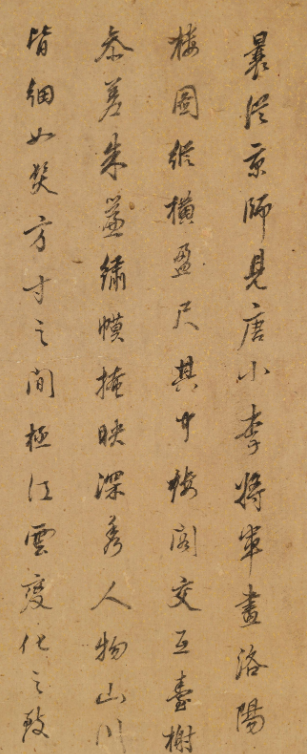 曩從京師見唐小李將軍畫洛陽
樓圖縱橫盈尺其中樓閣交互臺榭
參差朱簾繡幙掩映深秀人物山川
皆細如髮方寸之間極江雲變化之致